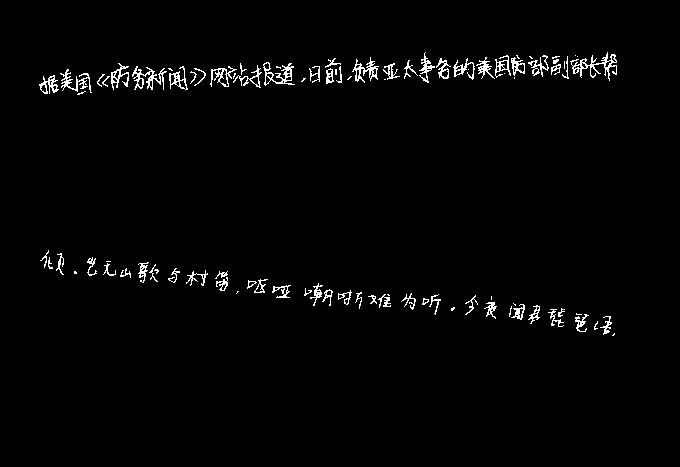 据美国《防务新闻》网站报道,日前,负责亚太事务的美国防部副部长帮
倾。岂无山歌与村笛,呕哑嘲哳难为听。今夜闻君琵琶语,